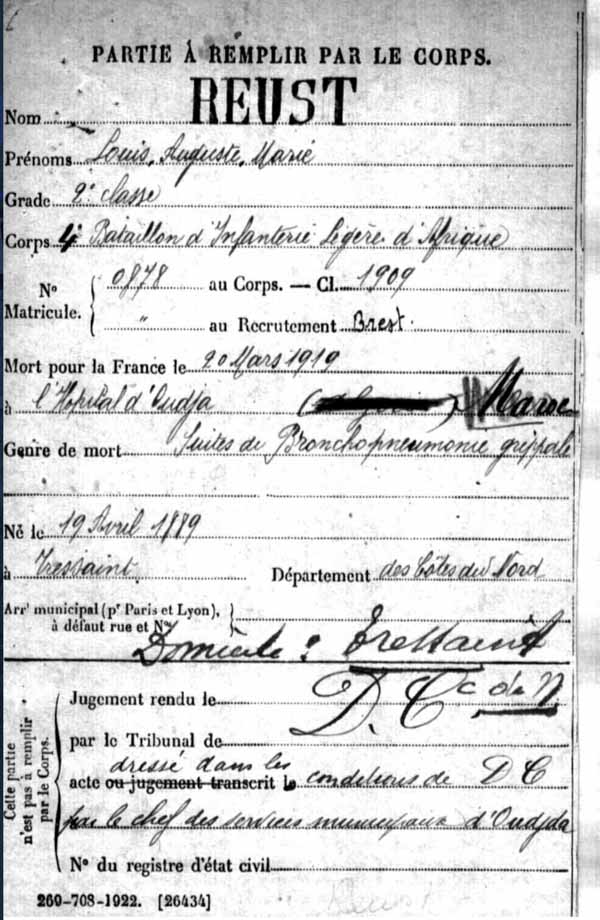 PARTIE À REMPLIR PAR LE CORPS.
Nom REUST
Prénoms Louis, Auguste, Marie
Grade 2e classe
Corps 4e Bataillon d'Infanterie Légère d'Afrique
No Matricule. { 0878 au Corps. — Cl. 1909
" au Recrutement Brest.
Mort pour la France le 20 Mars 1919
à l'Hôpital d'Oudja ( ) Maroc
Genre de mort Suites de Bronchopneumonie grippale
Né le 19 Avril 1889
à Tressaint Département des Côtes du Nord
Arrt municipal (pr Paris et Lyon),
à défaut rue et No
Domicile : Tressaint
D. C. C. du N
Jugement rendu le
par le Tribunal de
dressé dans les
acte ou jugement transcrit le conditions de D C
par le chef des services municipaux d'Oudjda
No du registre d'état civil
Cette partie
n'est pas à remplir
par le Corps.
260-708-1922. [26434]